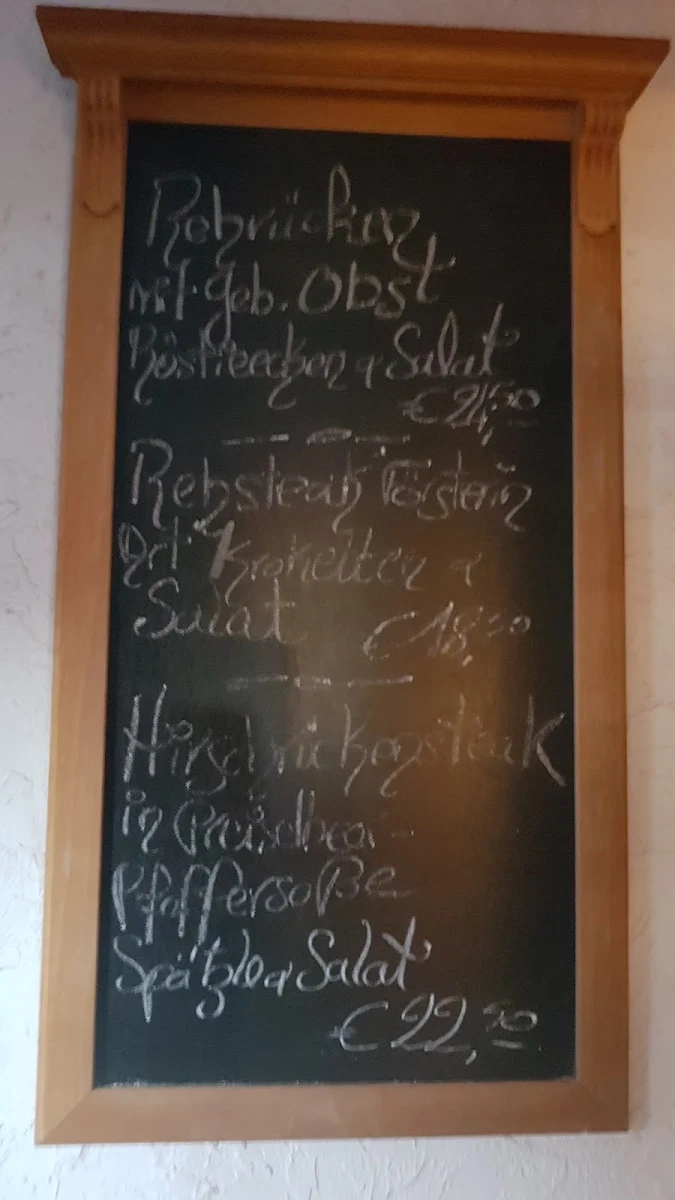 Rehrücken
mit geb. Obst
Röstiecken & Salat
€ 21,50
Rehsteak Försterin
Art Kroketten &
Salat € 18,50
Hirschrückensteak
in Preiselbeer-
Pfeffersoße
Spätzle & Salat
€ 22,50